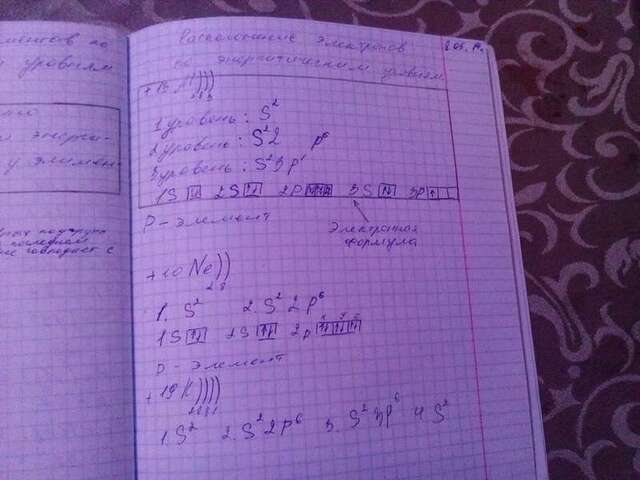 ментов по
уровням
энерги-
у элемен-
последнем
совпадает с
Расположение электронов
по энергетическим уровням
+13 Al)))
2 8 3
1 уровень: S²
2 уровень: S²2 p⁶
3 уровень: S²3p¹
1S ↑↓ 2S ↑↓ 2P ↑↓ ↑↓ ↑↓ 3S ↑↓ 3p ↑
P-элемент
Электронная
формула
+10 Ne))
2 8
1. S² 2. S² 2p⁶
1S ↑↓ 2S ↑↓ 2p ↑↓ ↑↓ ↑↓
P-элемент
+19 K))))
2 8 8 1
1. S² 2. S² 2p⁶ 3. S² 3p⁶ 4. S²